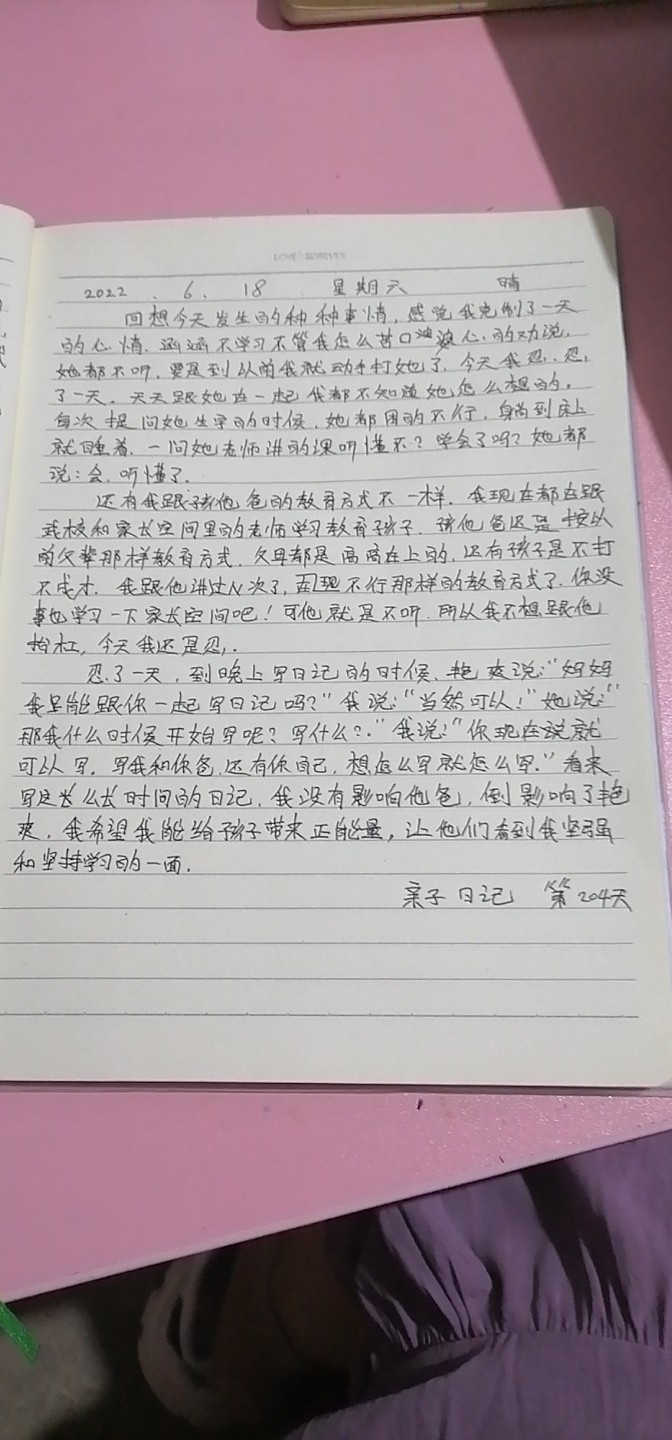 LOVE FOREVER
2022 . 6 . 18 星期六 晴
回想今天发生的种种事情，感觉我克制了一天
的心情，涵涵不学习不管我怎么苦口 婆心的劝说，
她都不听，要是到以前我就动手打她了，今天我忍，忍，
了一天。天天跟她在一起我都不知道她怎么想的。
每次提问她生字的时候，她都困的不行，躺到床上
就睡着，一问她老师讲的课听懂不？学会了吗？她都
说：会，听懂了，
还有我跟孩他爸的教育方式不一样，我现在都在跟
学校和家长空间里的老师学习教育孩子，孩他爸还是按以
前父辈那样教育方式，父母都是高高在上的，还有孩子是不打
不成才，我跟他讲过N次了， 现不行那样的教育方式了，你没
事也学习一下家长空间吧！可他就是不听，所以我不想跟他
抬杠，今天我还是忍，.
忍了一天，到晚上写日记的时候，艳爽说：“妈妈
我足能跟你一起写日记吗？”我说：“当然可以！”她说：“
那我什么时候开始写呢？写什么？.”我说：“你现在说就
可以写，写我和你爸，还有你自己，想怎么写就怎么写.”看来
写这么长时间的日记，我没有影响他爸，倒影响了艳
爽，我希望我能给孩子带来正能量，让他们看到我坚强
和坚持学习的一面.
亲子日记 第204天